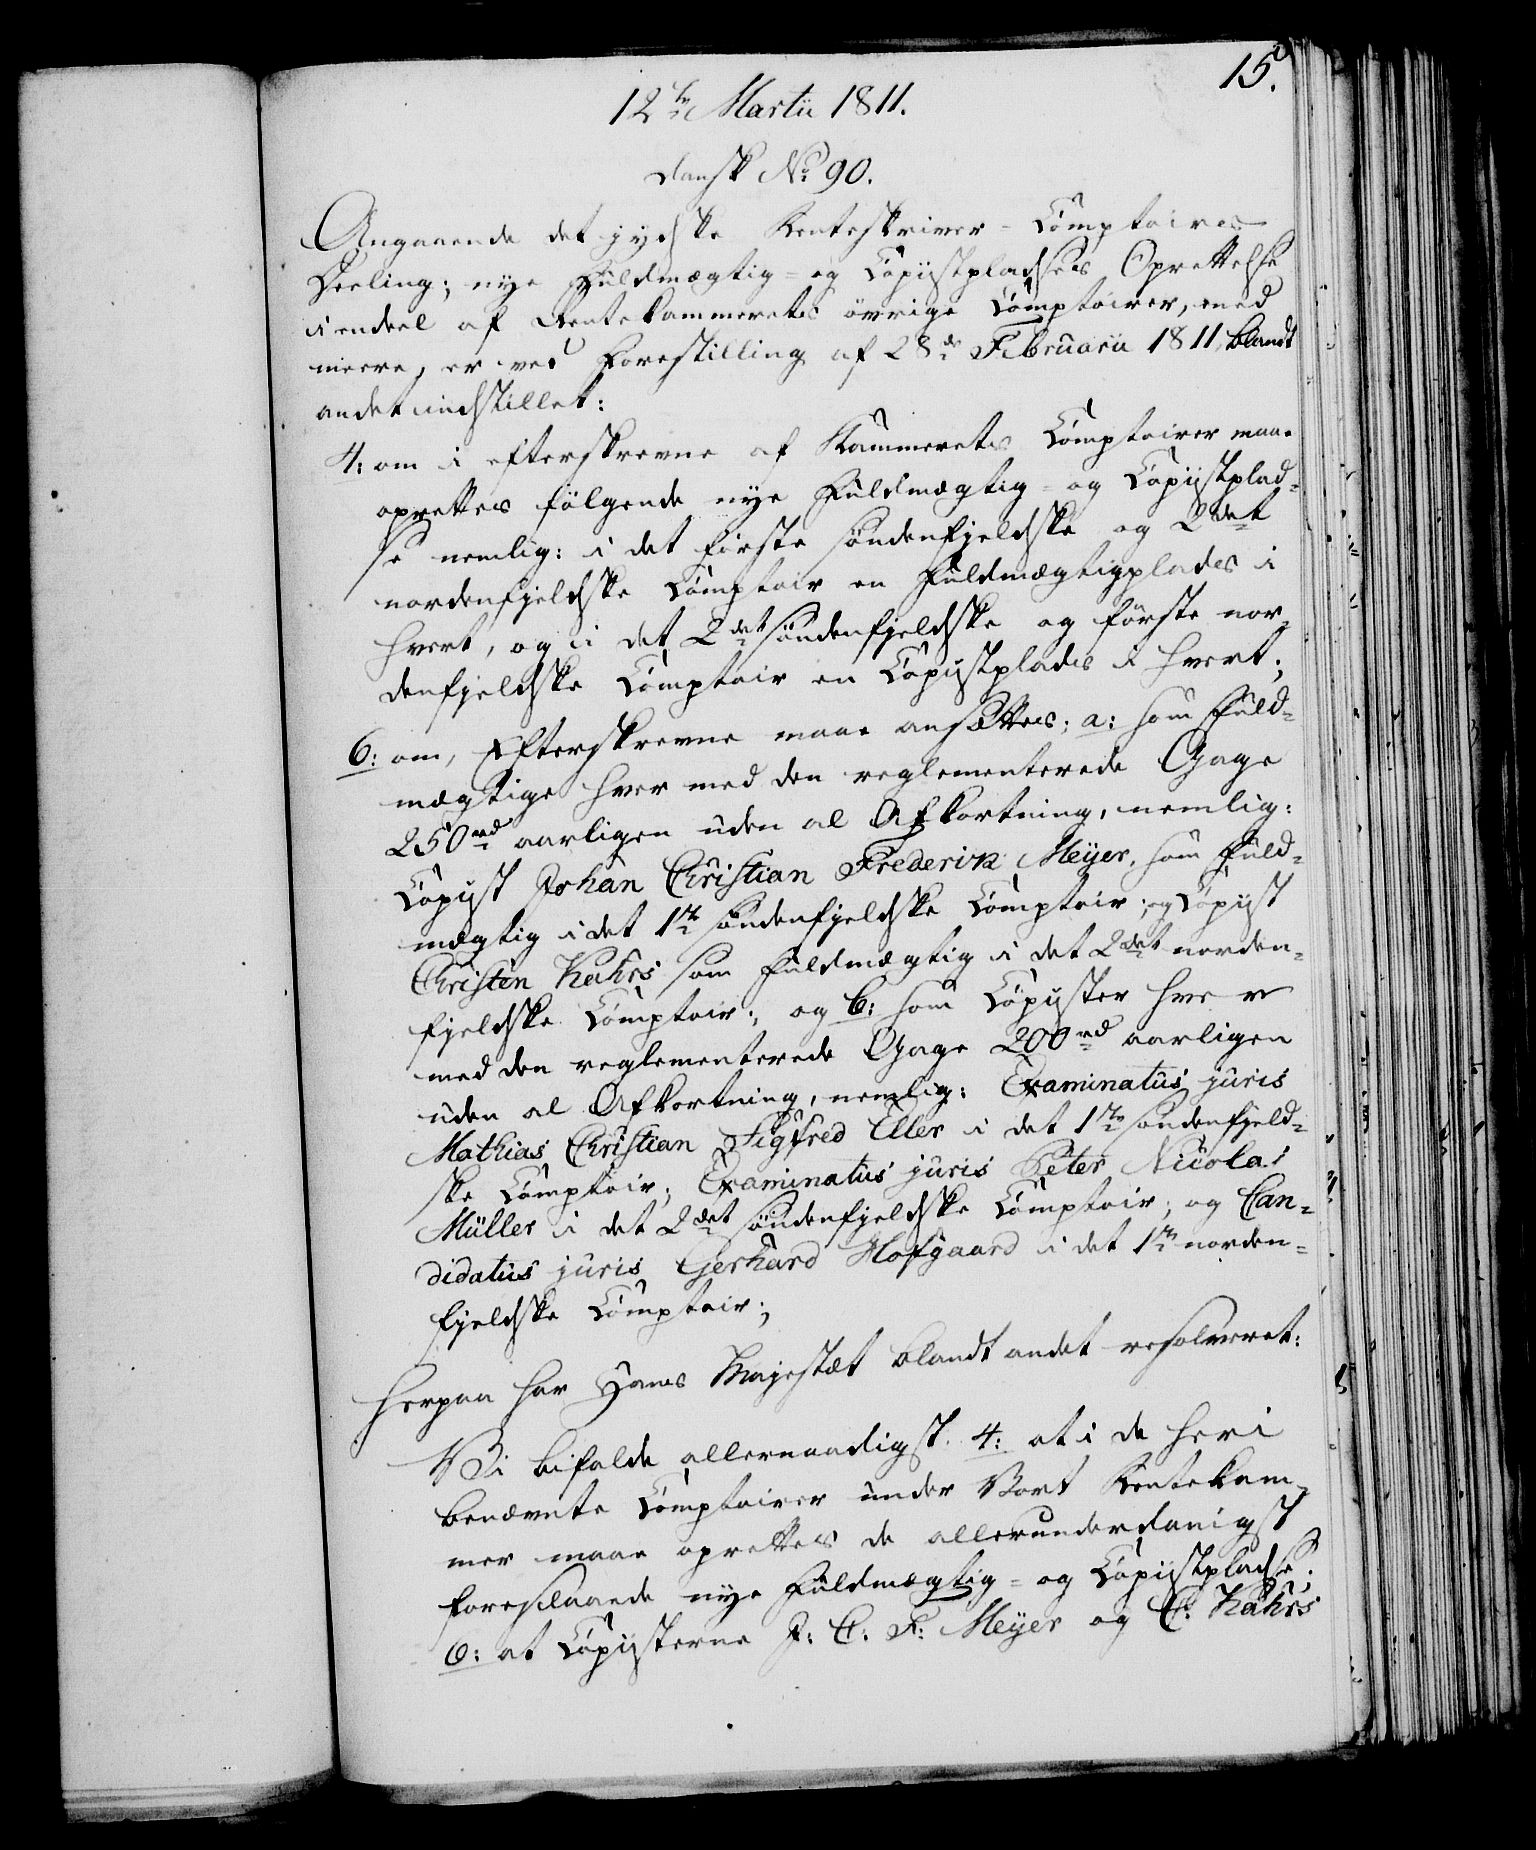 15.
12te Martii 1811.
dansk No 90.
Angaaende det jydske Renteskriver-Comptoires
Deeling; nye Fuldmægtig- og Copiistpladsers Oprettelse
i endeel af Rentekammerets övrige Comptoirer, med
meere, er ved Forestilling af 28de Februarii 1811 blandt
andet indstillet:
4: om i efterskrevne af Kammerets Comptoirer maae
oprettes fölgende nye Fuldmægtig- og Copiistplad-
se nemlig: i det förste söndenfjeldske og 2det
nordenfjeldske Comptoir en Fuldmægtigplads i
hvert, og i det 2det söndenfjeldske og förste nor-
denfjeldske Comptoir en Copiistplads i hvert;
6: om, Efterskrevne maae ansættes; a: som Fuld-
mægtige hver med den reglementerede Gage
250rd aarligen uden al Afkortning, nemlig:
Copiist Johan Christian Frederik Meyer, som Fuld-
mægtig i det 1te söndenfjeldske Comptoir; og Copiist
Christen Kahrs som Fuldmægtig i det 2det norden-
fjeldske Comptoir; og b: som Copiister hver
med den reglementerede Gage 200rd aarligen
uden al Afkortning, nemlig: Examinatus juris
Mathias Christian Sigfred Eller i det 1te söndenfjeld-
ske Comptoir; Examinatus juris Peter Nicolai
Müller i det 2det söndenfjeldske Comptoir; og Can-
didatus juris Gerhard Hofgaard i det 1te norden-
fjeldske Comptoir;
Herpaa har Hans Majestæt blandt andet resolveret:
Vi bifalde allernaadigst 4: at i de heri
benævnte Comptoirer under Vort Rentekam-
mer maae oprettes de allerunderdanigst
foreslaaede nye Fuldmægtig- og Copiistpladse;
6: at Copiisterne J: C: F: Meyer og C: Kahrs